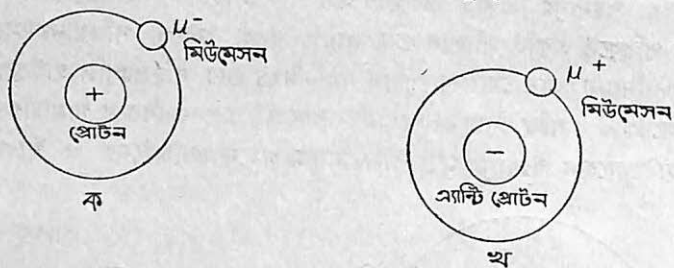 μ⁻
মিউমেসন
+
প্রোটন
ক
μ⁺
মিউমেসন
−
এ্যান্টি প্রোটন
খ